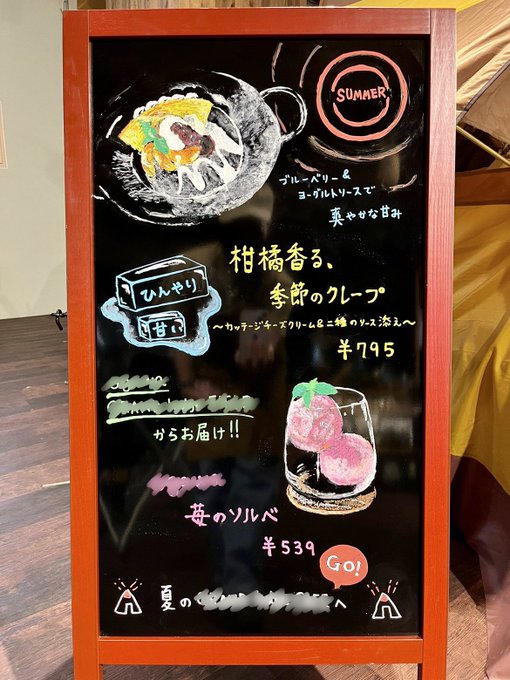 SUMMER
ブルーベリー&
ヨーグルトソースで
爽やかな甘み
柑橘香る、
季節のクレープ
〜カッテージチーズクリーム&二種のソース添え〜
¥795
ひんやり
甘い
からお届け!!
苺のソルベ
¥539
GO!
夏の
へ